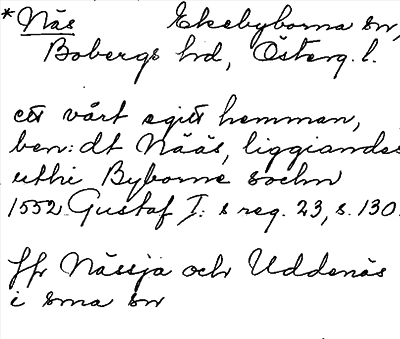 *Näs Ekebyborna sn,
Bobergs hd, Österg. l.
ett vårt egitt hemman,
ben: dt Nääs, liggiandes
uthi Byborne sochn
1552 Gustaf I: s reg. 23, s. 130.
Jfr Nässja och Uddenäs
i sma sn